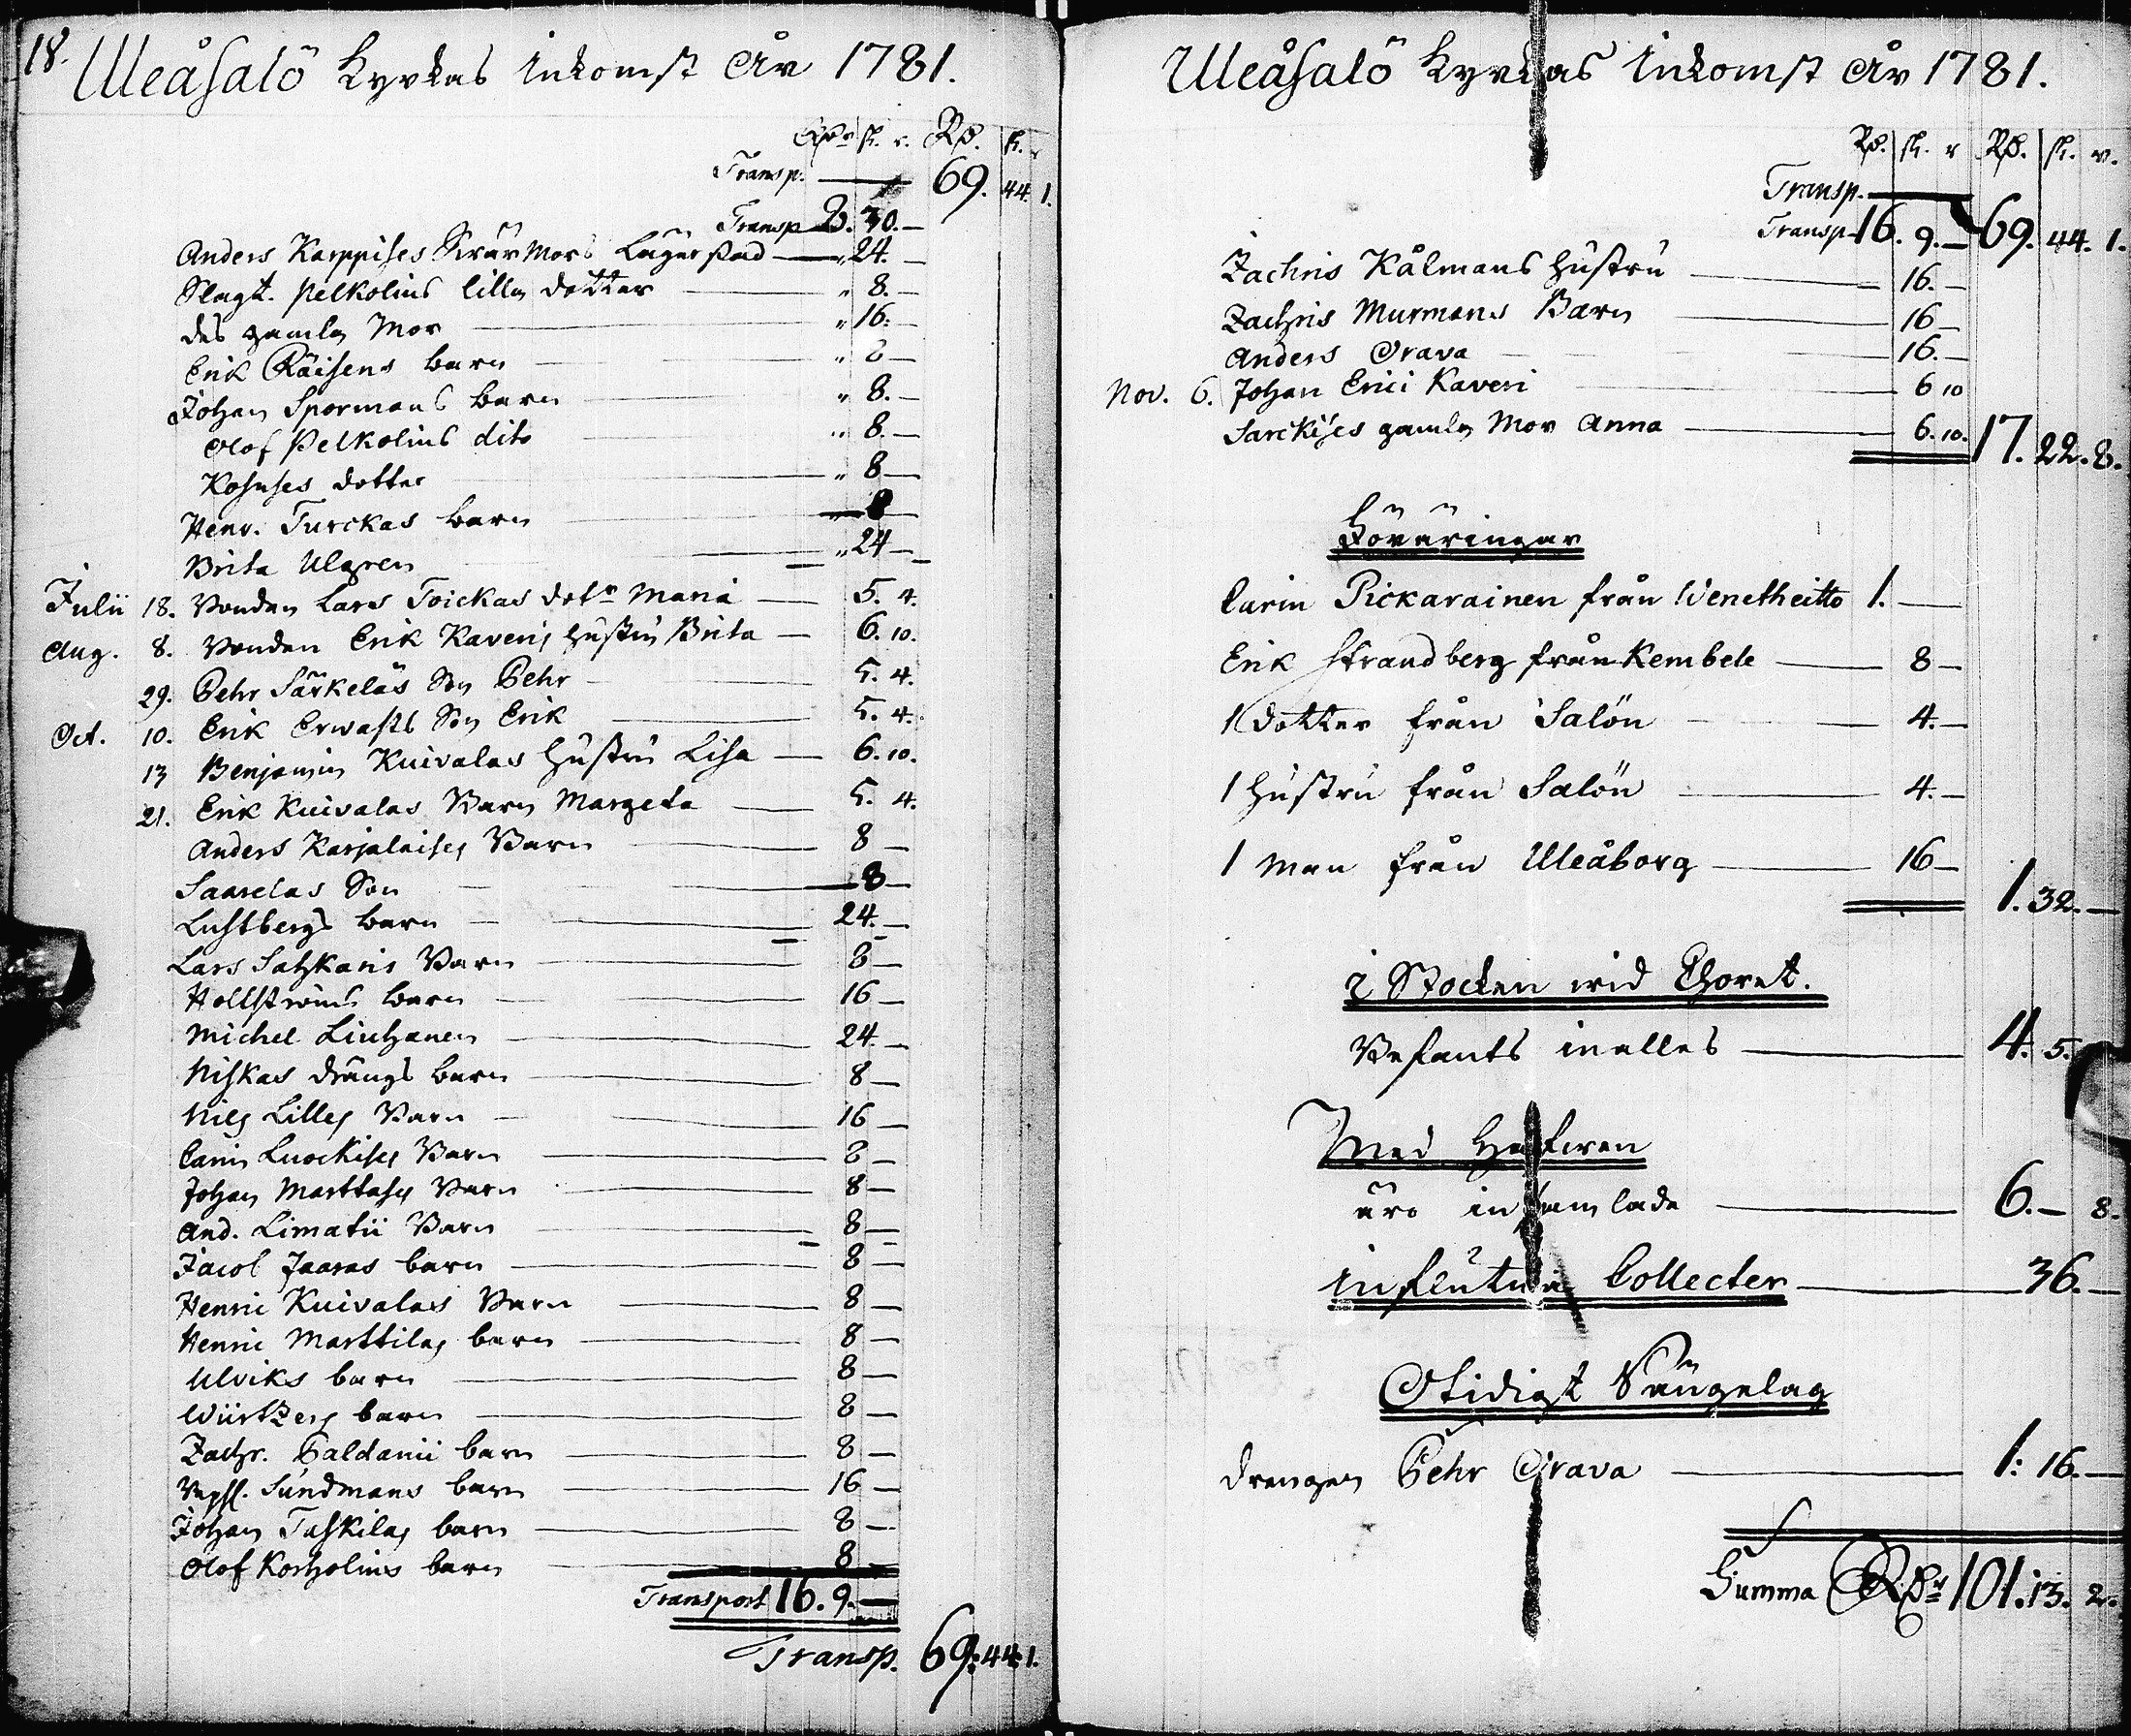 18.
Uleåsalö Kyrkas Inkomst År 1781.
Rd. sk. r. Rd. sk. r
Transp. — 69. 44. 1.
Transp 8. 30. —
Anders Karppises Svär Mors Lägerstad — " 24. —
Slagt. Pelkolins lilla dotter — " 8. —
des gamla Mor — " 16. —
Erik Räisens barn — " 8 —
Johan Spormans barn — " 8. —
Olof Pelkolins dito — " 8. —
Kosuses dotter — " 8 —
Henr. Turckas barn — " 8 —
Brita Ulgren — " 24 —
Julii 18. Bonden Lars Toickas dotr Maria — 5. 4.
Aug. 8. Bonden Erik Kaveris hustru Brita — 6. 10.
29. Pehr Särkeläs Son Pehr — 5. 4.
Oct. 10. Erik Erwasts Son Erik — 5. 4.
13 Benjamin Kuivalas Hustru Lisa — 6. 10.
21. Erik Kuivalas Barn Margeta — 5. 4.
Anders Karjalaises Barn — 8 —
Saarelas Son — 8 —
Lustbergs barn — 24. —
Lars Sahkaris Barn — 8 —
Hollströms barn — 16 —
Michel Liuhanen — 24. —
Niskas drängs barn — 8 —
Nils Lilles Barn — 16 —
Carin Luockises Barn — 8 —
Johan Marttases Barn — 8 —
And. Limatii Barn — 8 —
Jacob Jaaras barn — 8 —
Henric Kuivalas Barn — 8 —
Henric Marttilas barn — 8 —
Ulviks barn — 8 —
Würtzens barn — 8 —
Zachr. Paldanii barn — 8 —
Sundmans barn — 16 —
Johan Taskilas barn — 8 —
Olof Korholins barn — 8 —
Transport 16. 9. —
Transp. 69: 44: 1.
Uleåsalö Kyrkas Inkomst År 1781.
Rd. sk. r Rd. sk. r.
Transp. —
Transp 16. 9. — 69. 44. 1.
Zachris Kålmans hustru — 16. —
Zachris Murmans Barn — 16 —
Anders Orava — 16. —
Nov. 6. Johan Erici Kaveri — 6 10
Sarckises gamla Mor Anna — 6. 10. 17. 22. 8.
Föräringar
Carin Pickarainen från Wenetheitto 1. —
Erik Strandberg från Kembele — 8 —
1 Dotter från Salön — 4. —
1 Hustru från Salön — 4. —
1 Man från Uleåborg — 16 —
1. 32. —
i Stocken wid Choret.
Befants inalles — 4. 5.
Med Hafwen
äro insamlade — 6. — 8.
influtna Collecter — 36. —
Otidigt Sängelag
Drengen Pehr Orava — 1: 16. —
Summa Rdr 101. 13. 2.